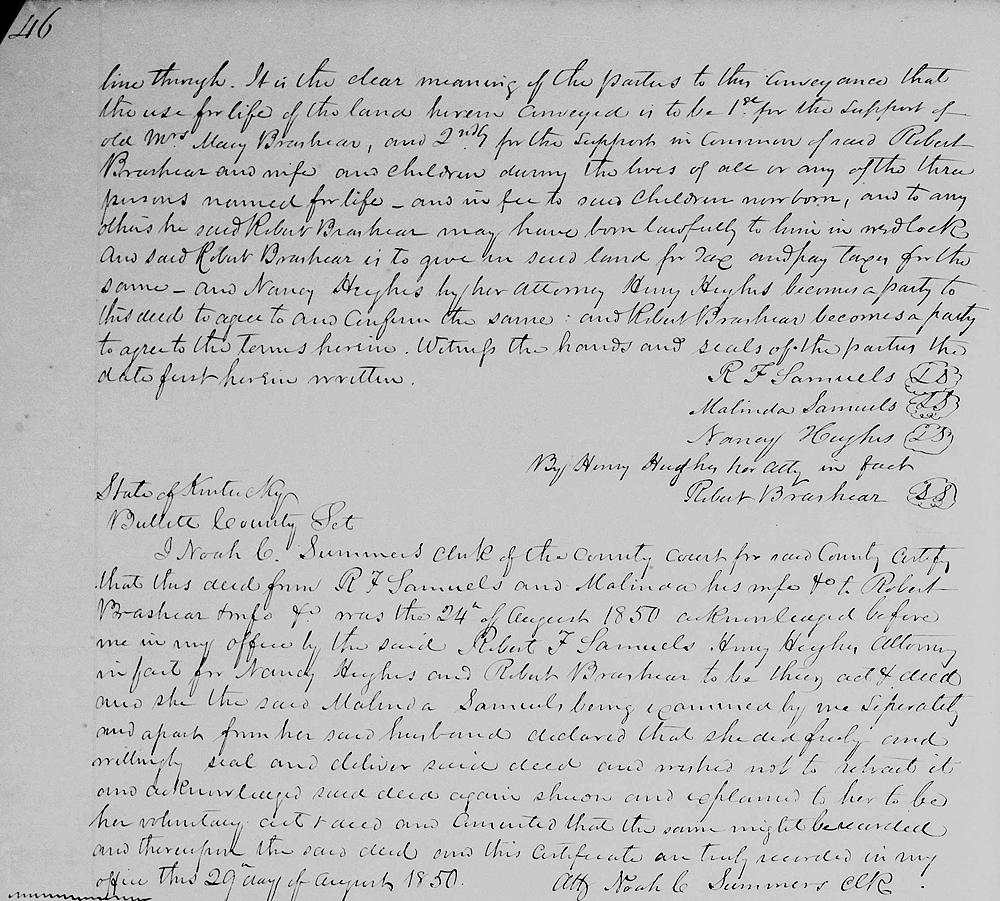 46
line through. It is the clear meaning of the parties to this Conveyance that
the use for life of the land herein Conveyed is to be 1st for the support of
old Mrs Mary Brashear, and 2ndly for the support in Common of said Robert
Brashear and wife and children during the lives of all or any of the three
persons named for life – and in fee to said children now born, and to any
others he said Robert Brashear may have born lawfully to him in wedlock
And said Robert Brashear is to give in said land for Tax and pay taxes for the
same – and Nancy Hughes by her attorney Henry Hughes becomes a party to
this deed to agree to and Confirm the same : and Robert Brashear becomes a party
to agree to the terms herein. Witness the hands and seals of the parties the
date first herein written.
R F Samuels LS
Malinda Samuels LS
Nancy Hughes LS
By Henry Hughes her atty in fact
Robert Brashear LS
State of Kentucky
Bullitt County Sct
I Noah C. Summers clerk of the County court for said County Certify
that this deed from R F Samuels and Malinda his wife &c to Robert
Brashear & wife &c was the 24th of August 1850 acknowledged before
me in my office by the said Robert F Samuels Henry Hughes Attorney
in fact for Nancy Hughes and Robert Brashear to be their act & deed
and she the said Malinda Samuels being examined by me Seperately
and apart from her said husband declared that she did freely and
willingly seal and deliver said deed and wished not to retract it
and acknowledged said deed again shewn and explained to her to be
her voluntary act & deed and Consented that the same might be recorded
and thereupon the said deed and this Certificate are truly recorded in my
office this 29th day of August 1850.
Att Noah C Summers Clk.